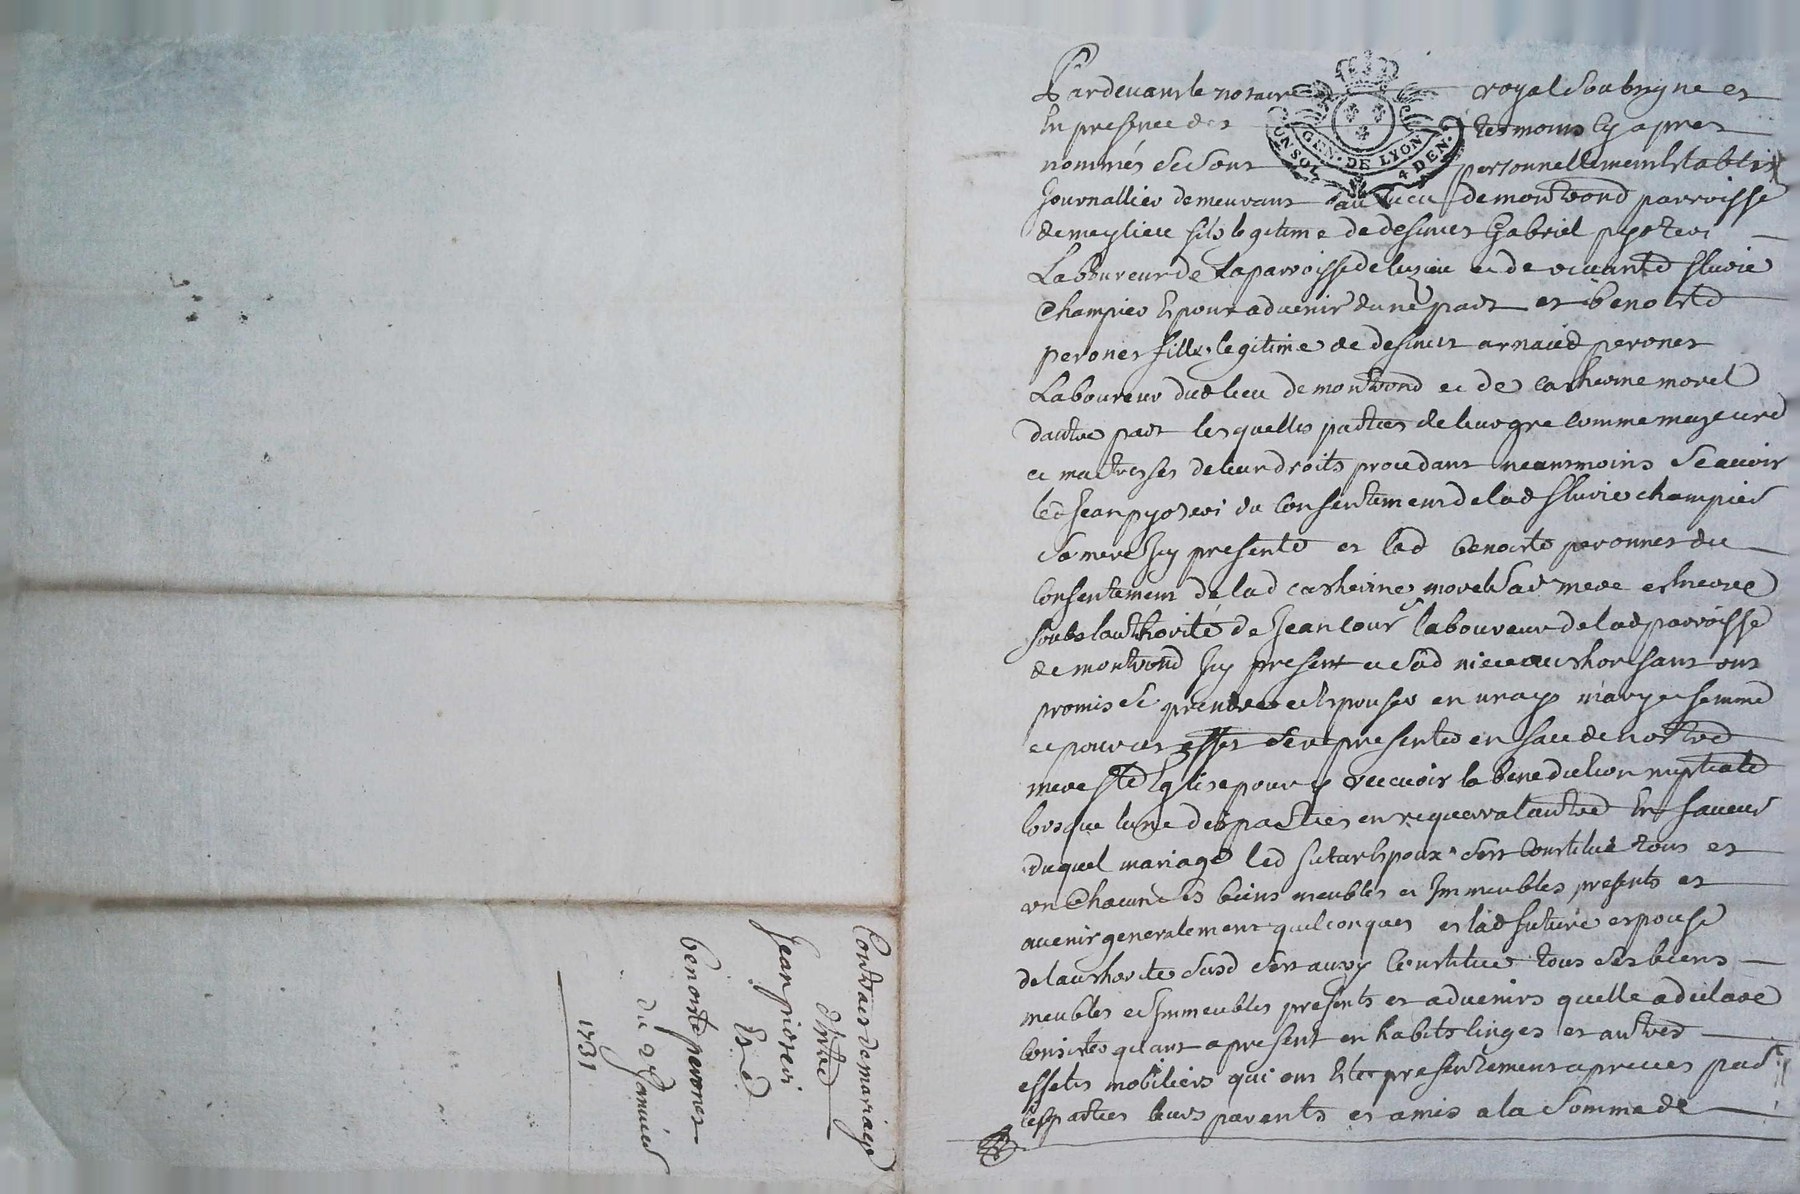 Pardevant le notaire royal Soubsigne et
En presence des tesmoins Cy apres
nommés Se Sont personnellement Establis
GEN. DE LYON
4 DEN.
Journallier demeurant au lieu de montrond parroisse
de meylieu fils legitime de defunct Gabriel pyotevi
Laboureur de la parroisse de et de vivante fluvie
Champier Epour advenir dune part et benoiste
perones fille legitime de defunct arnaud perones
Laboureur dud lieu de montrond et de catherine morel
dautre part lesquelles parties de leur gre comme majeure
et maitresses de leur droits procedant neantmoins Scavoir
led Jean pyotevi du Consentement de lad fluvie champier
Sa mere Icy presente et lad benoiste peronnes du
Consentement de lad catherine morel Sad mere et
soubs lauthorité de Jean cour laboureur de lad parroisse
de montrond Icy present et Sad niece authorisant ont
promis Se prendre et Espouser en vrays mary et femme
et pour cet effet Se representer en face de nostre
mere Ste Eglise pour y recevoir la benediction nuptiale
lorsque lune des parties en requerra lautre En faveur
duquel mariage led futur Epoux Sest Constitué tous et
un Chacuns Ses biens meubles et Immeubles presents et
avenir generalement quelconques et lad future espouse
de lauthorite Susd Sest aussy Constitue tous Ses biens
meubles et Immeubles presents et advenirs quelle a declaré
Consister quant a present en habits linges et autres
effets mobiliers qui ont Eté presentement apreciés par
les parties leurs parents et amis a la Somme de
Contract de mariage
Entre
Jean piotevi
Et
benoiste perones
du 2 Janvier
1731